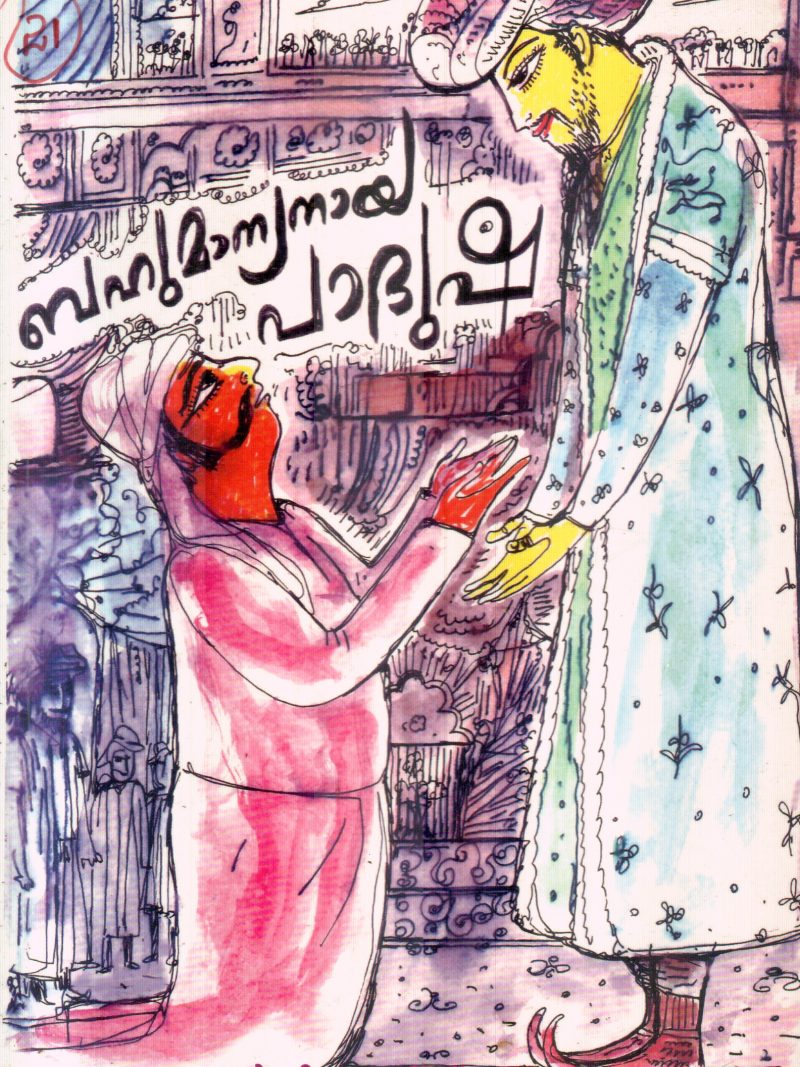 21
ബഹുമാന്യനായ
പാദുഷ